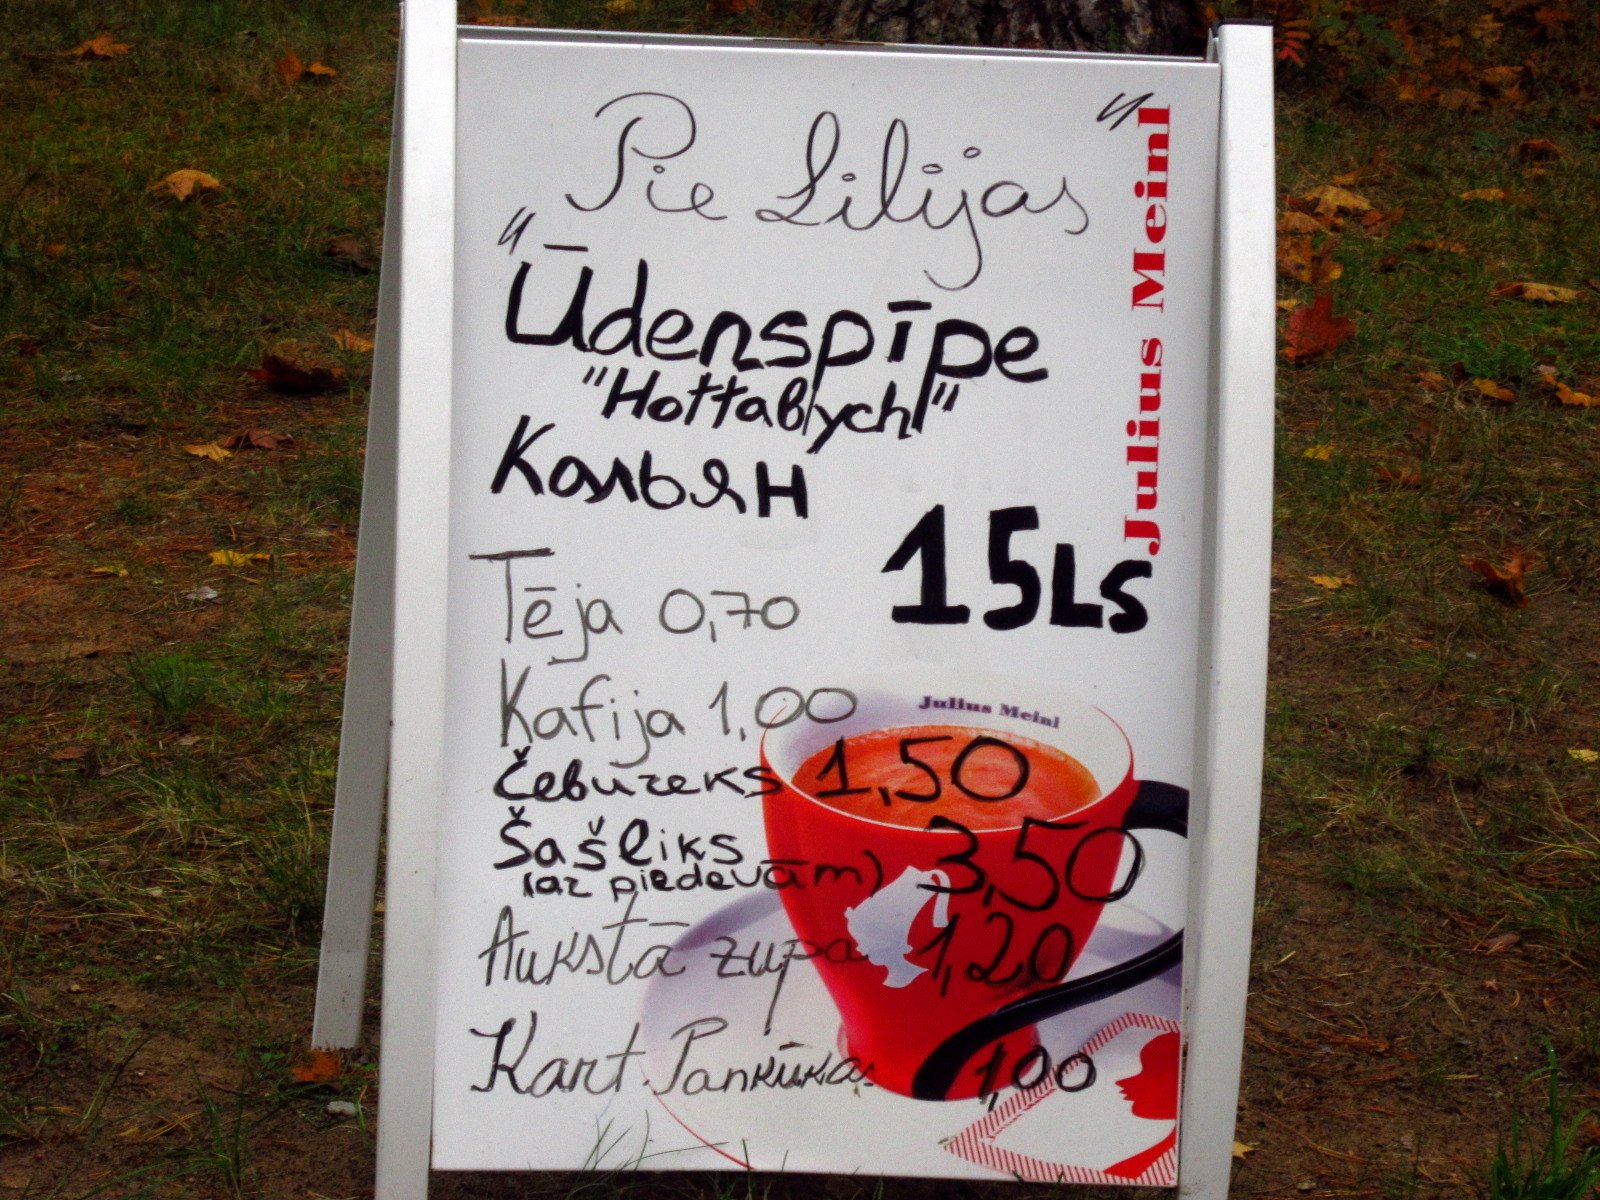 "Pie Lilijas"
Ūdenspīpe
"Hottabych"
Кальян
15Ls
Tēja 0,70
Kafija 1,00
Čebureks 1,50
Šašliks 3,50
(ar piedevām)
Aukstā zupa 1,20
Kart. Pankūkas 1,00
Julius Meinl
Julius Meinl